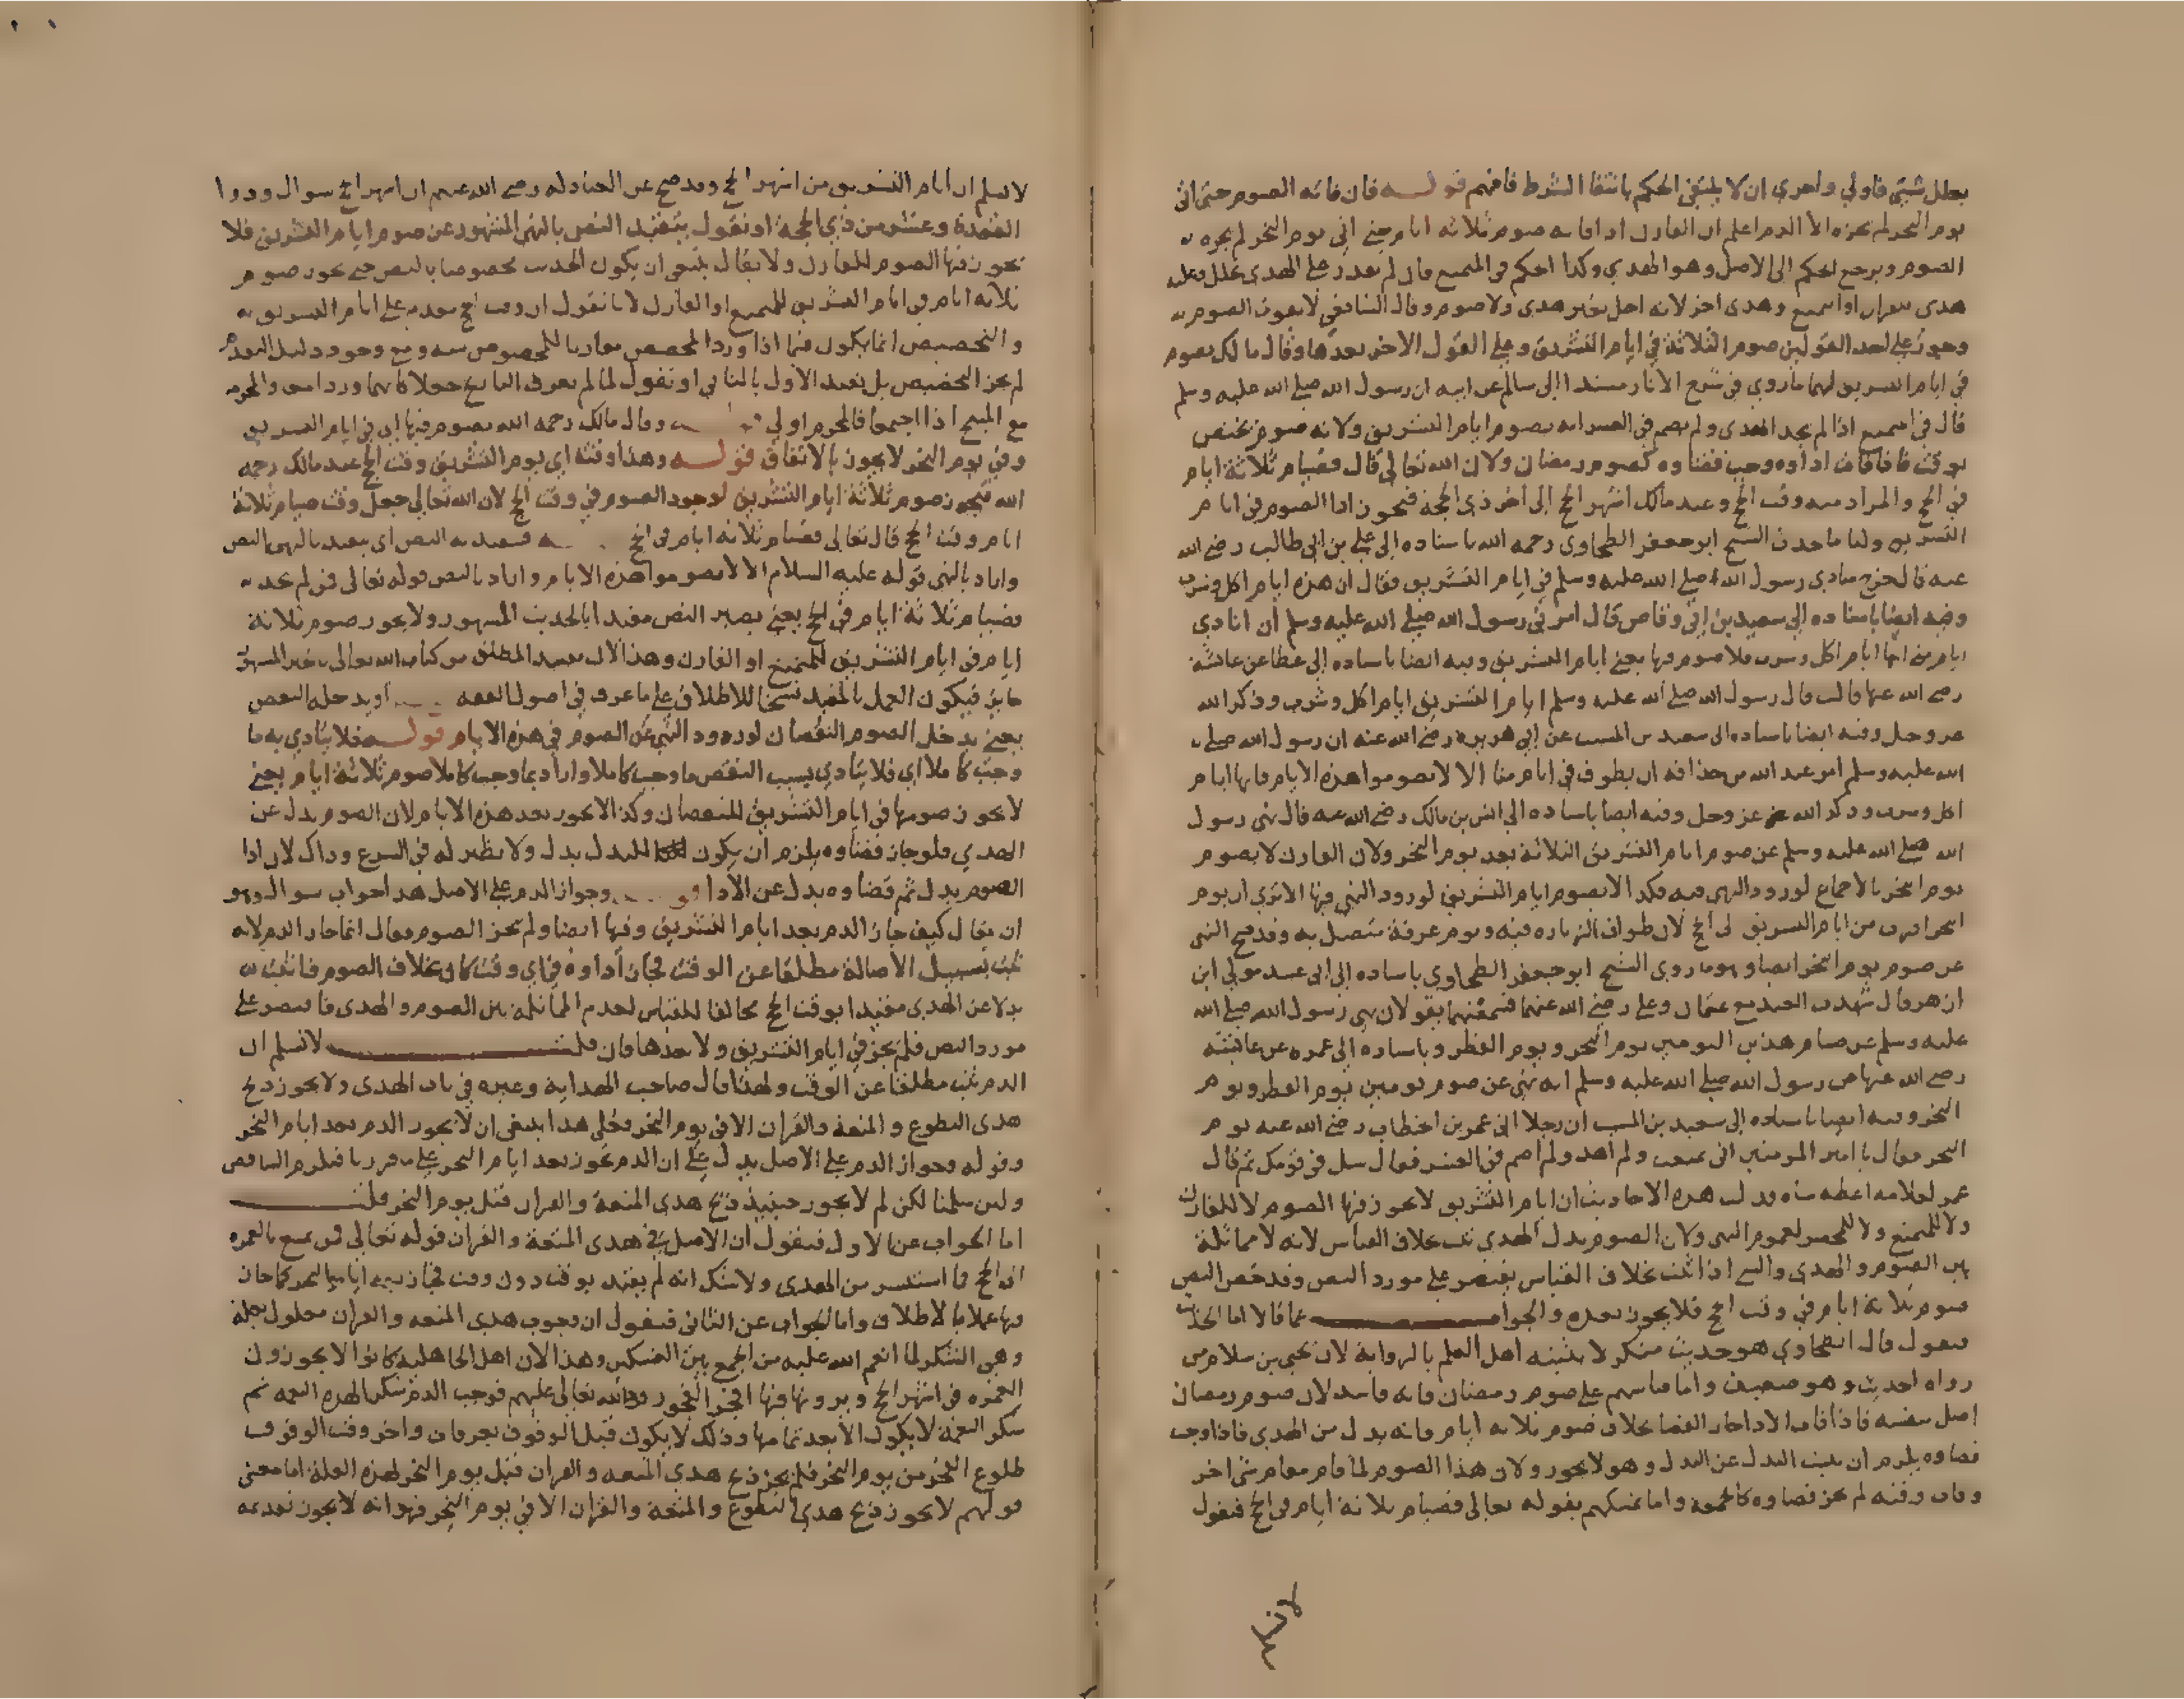 بعلل شتى فاولى واحرى ان لا ينتفى الحكم بانتفا الشرط فافهم قوله فان فاته الصوم حتى اتى
يوم النحر لم يجزه الا الدم اعلم ان القارن اذا فاته صوم ثلاثة ايام حتى اتى يوم النحر لم يجزه
الصوم ويرجع الحكم الى الاصل وهو الهدي وكذا الحكم في المتمتع فان لم يقدر على الهدى تحلل وعليه
هدى وهدى اخر لانه احل بغير هدى ولا صوم وقال الشافعي لا يفوت الصوم
وجوز على احد القولين صوم الثلاثة في ايام التشريق وعلى القول الاخر بعدها وقال مالك يصوم
في ايام التشريق لهما ما روي في شرح الاثار مسندا الى سالم عن ابيه ان رسول الله صلى الله عليه وسلم
قال في المتمتع اذا لم يجد الهدى ولم يصم في العشر انه يصوم ايام التشريق ولانه صوم مختص
بوقت فاذا فات اداوه وجب قضاوه كصوم رمضان ولان الله تعالى قال فصيام ثلاثة ايام
في الحج والمراد منه وقت الحج وعند مالك اشهر الحج الى اخر ذي الحجة فيجوز ادا الصوم في ايام
التشريق ولنا ما حدث الشيخ ابو جعفر الطحاوى رحمه الله باسناده الى علي بن ابي طالب رضي الله
عنه قال خرج منادى رسول الله صلى الله عليه وسلم في ايام التشريق فقال ان هذه ايام اكل وشرب
وفيه ايضا باسناده الى سعد بن ابي وقاص قال امرني رسول الله صلى الله عليه وسلم ان انادي
ايام منى انها ايام اكل وشرب فلا صوم فيها يعني ايام التشريق وفيه ايضا باسناده الى عطا عن عائشة
رضي الله عنها قالت قال رسول الله صلى الله عليه وسلم ايام التشريق ايام اكل وشرب وذكر الله
عز وجل وفيه ايضا باسناده الى سعيد بن المسيب عن ابي هريرة رضي الله عنه ان رسول الله صلى
الله عليه وسلم امر عبد الله بن حذافة ان يطوف في ايام منى الا لا تصوموا هذه الايام فانها ايام
اكل وشرب وذكر الله عز وجل وفيه ايضا باسناده الى انس بن مالك رضي الله عنه قال نهى رسول
الله صلى الله عليه وسلم عن صوم ايام التشريق الثلاثة بعد يوم النحر ولان القارن لا يصوم
يوم النحر بالاجماع لورود النهى فيه فكذا لا يصوم ايام التشريق لورود النهى فيها الا ترى ان يوم
النحر اقرب من ايام التشريق الى الحج لان طواف الزيارة فيه ويوم عرفة متصل به وقد صح النهى
عن صوم يوم النحر ايضا وهو ما روى الشيخ ابو جعفر الطحاوي باسناده الى ابي عبيد مولى ابن
ازهر قال شهدت العيد مع عثمان وعلي رضي الله عنهما فسمعتهما يقولان نهى رسول الله صلى الله
عليه وسلم عن صيام هذين اليومين يوم النحر ويوم الفطر وباسناده الى عمرة عن عائشة
رضي الله عنها عن رسول الله صلى الله عليه وسلم انه نهى عن صوم يومين يوم الفطر ويوم
النحر وفيه ايضا باسناده الى سعيد بن المسيب ان رجلا اتى عمر بن الخطاب رضي الله عنه يوم
النحر فقال يا امير المومنين اني تمتعت ولم اهد ولم اصم في العشر فقال سل في قومك ثم قال
عمر لغلامه اعطه شاه فدلت هذه الاحاديث ان ايام التشريق لا يجوز فيها الصوم لا للقارن
ولا للمتمتع ولا للمحصر لعموم النهى ولان الصوم بدل الهدي ثبت بخلاف القياس لانه لا مماثلة
بين الصوم والهدى والشي اذا ثبت بخلاف القياس يقتصر على مورد النص وقد خص النص
صوم ثلاثة ايام في وقت الحج فلا يجوز بعده والجواب عما قالا اما الحديث
فنقول قال الطحاوي هو حديث منكر لا يثبته اهل العلم بالرواية لان يحيى بن سلام من
رواه الحديث وهو ضعيف واما قياسهم على صوم رمضان فانه فاسد لان صوم رمضان
اصل بنفسه فاذا فات الادا جاز القضا بخلاف صوم ثلاثة ايام فانه بدل من الهدي فاذا وجب
قضاوه يلزم ان يثبت البدل عن البدل وهو لا يجوز ولان هذا الصوم لما قام مقام شي اخر
وفات وقته لم يجز قضاوه كالجمعة واما تمسكهم بقوله تعالى فصيام ثلاثة ايام في الحج فنقول
لا نسلم
لا نسلم ان ايام التشريق من اشهر الحج وقد صح عن العبادلة رضي الله عنهم ان اشهر الحج شوال وذوا
القعدة وعشر من ذي الحجة او نقول يتقيد النص بالنهى المشهور عن صوم ايام التشريق فلا
يجوز فيها الصوم للقارن ولا يقال ينبغى ان يكون الحديث مخصوصا بالنص حتى يجوز صوم
ثلاثة ايام في ايام التشريق للمتمتع او القارن لانا نقول ان وقت الحج مقدم على ايام التشريق
والتخصيص انما يكون فيما اذا ورد المخصص مقارنا للمخصوص منه ومع وجود دليل التقدم
لم يجز التخصيص بل نقيد الاول بالثاني او نقول لما لم يعرف التاريخ جعلا كانهما وردا معا والمحرم
مع المبيح اذا اجتمعا فالمحرم اولى وقال مالك رحمه الله يصوم فيها اي في ايام التشريق
وفي يوم النحر لا يجوز بالاتفاق قوله وهذا وقته اي يوم التشريق وقت الحج عند مالك رحمه
الله فيجوز صوم ثلاثة ايام التشريق لوجود الصوم في وقت الحج لان الله تعالى جعل وقت صيام ثلاثة
ايام وقت الحج قال تعالى فصيام ثلاثة ايام في الحج فيقيد به النص اى يقيد بالنهى النص
واراد بالنهى قوله عليه السلام الا لا تصوموا هذه الايام واراد بالنص قوله تعالى فمن لم يجد
فصيام ثلاثة ايام في الحج يعني يصير النص مقيدا بالحديث المشهور ولا يجوز صوم ثلاثة
ايام في ايام التشريق للمتمتع او القارن وهذا لان تقييد المطلق من كتاب الله تعالى بالخبر المشهور
جايز فيكون العمل بالمقيد نسخا للاطلاق على ما عرف في اصول الفقه او يدخله النقص
يعني يدخل الصوم النقصان لورود النهي عن الصوم في هذه الايام قوله فلا يتادي به ما
وجب كاملا اي فلا يتادي بسبب النقص ما وجب كاملا واراد بما وجب كاملا صوم ثلاثة ايام يعني
لا يجوز صومها في ايام التشريق للنقصان وكذا لا يجوز بعد هذه الايام لان الصوم بدل عن
الهدي فلو جاز قضاوه يلزم ان يكون للبدل بدل ولا نظير له في الشرع وذاك لان ادا
الصوم بدل ثم قضاوه بدل عن الادا وجواز الدم على الاصل هذا جواب سوال وهو
ان يقال كيف جاز الدم بعد ايام التشريق وفيها ايضا ولم يجز الصوم فقال انما جاز الدم لانه
ثبت بسبيل الاصالة مطلقا عن الوقت فجاز اداوه في اي وقت كان بخلاف الصوم فانه ثبت
بدلا عن الهدى مقيدا بوقت الحج مخالفا للقياس لعدم المماثلة بين الصوم والهدى فاقتصر على
مورد النص فلم يجز في ايام التشريق ولا بعدها فان قلت لا نسلم ان
الدم ثبت مطلقا عن الوقت ولهذا قال صاحب الهداية وغيره في باب الهدى ولا يجوز ذبح
هدى التطوع والمتعة والقران الا في يوم النحر فعلى هذا ينبغى ان لا يجوز الدم بعد ايام النحر
وقوله وجواز الدم على الاصل يدل على ان الدم يجوز بعد ايام النحر على ما قررنا فيلزم التناقض
ولين سلمنا لكن لم لا يجوز حينيذ ذبح هدى المتعة والقران قبل يوم النحر قلت
اما الجواب عن الاول فنقول ان الاصل في هدى المتعة والقران قوله تعالى فمن تمتع بالعمرة
الى الحج فما استيسر من الهدى ولا شك انه لم يقيد بوقت دون وقت فجاز بعد ايام النحر كما جاز
فيها عملا بالاطلاق واما الجواب عن الثاني فنقول ان وجوب هدى المتعة والقران معلول بعلة
وهي الشكر لما انعم الله عليه من الجمع بين النسكين وهذا لان اهل الجاهلية كانوا لا يجوزون
العمرة في اشهر الحج ويرونها فيها افجر الفجور فوجب الدم شكرا لهذه النعمة ثم
شكر النعمة لا يكون الا بعد تمامها وذلك لا يكون قبل الوقوف بعرفات واخر وقت الوقوف
طلوع الفجر من يوم النحر فلم يجز ذبح هدي المتعة والقران قبل يوم النحر لهذه العلة اما معنى
قولهم لا يجوز ذبح هدي التطوع والمتعة والقران الا في يوم النحر فهو انه لا يجوز تقديمه